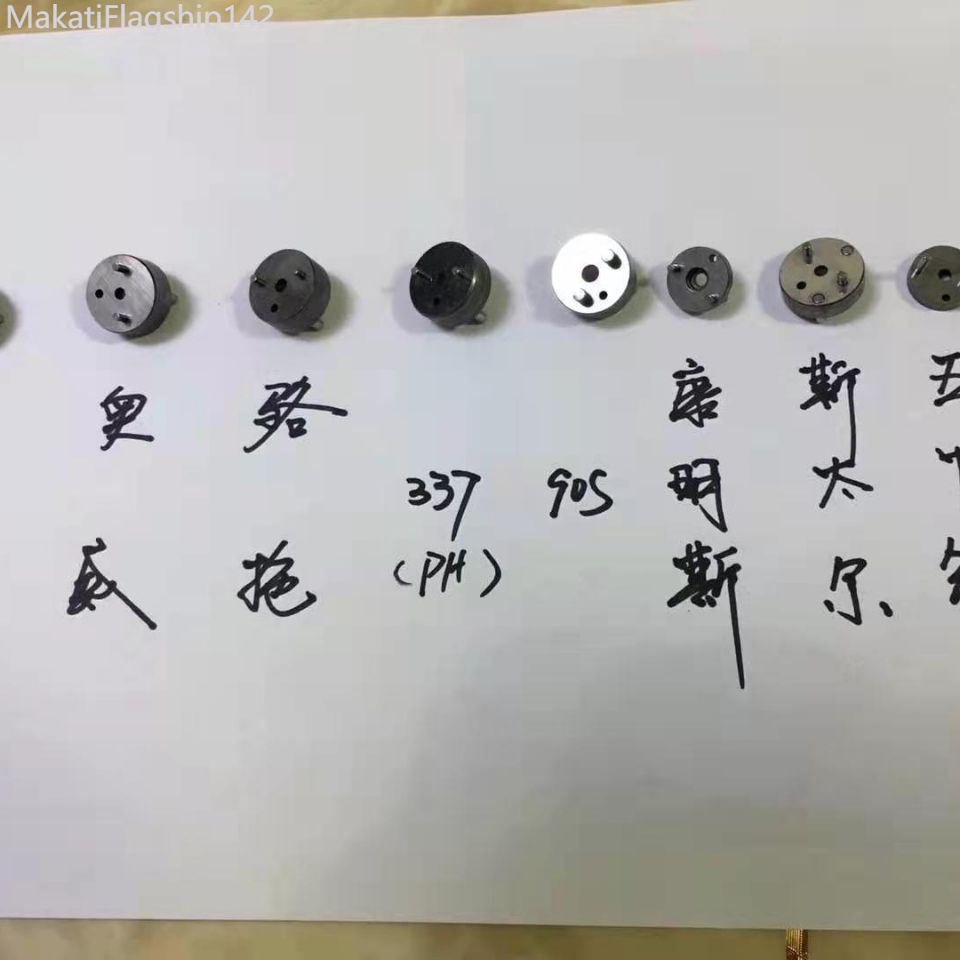 MakatiFlagship142
奥威
拖
337
(PH)
905
康明斯
斯太尔
五